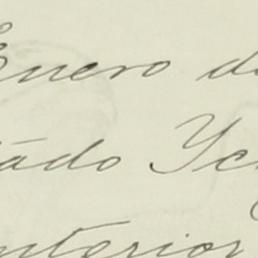 Enero d
tado Yc
nterior